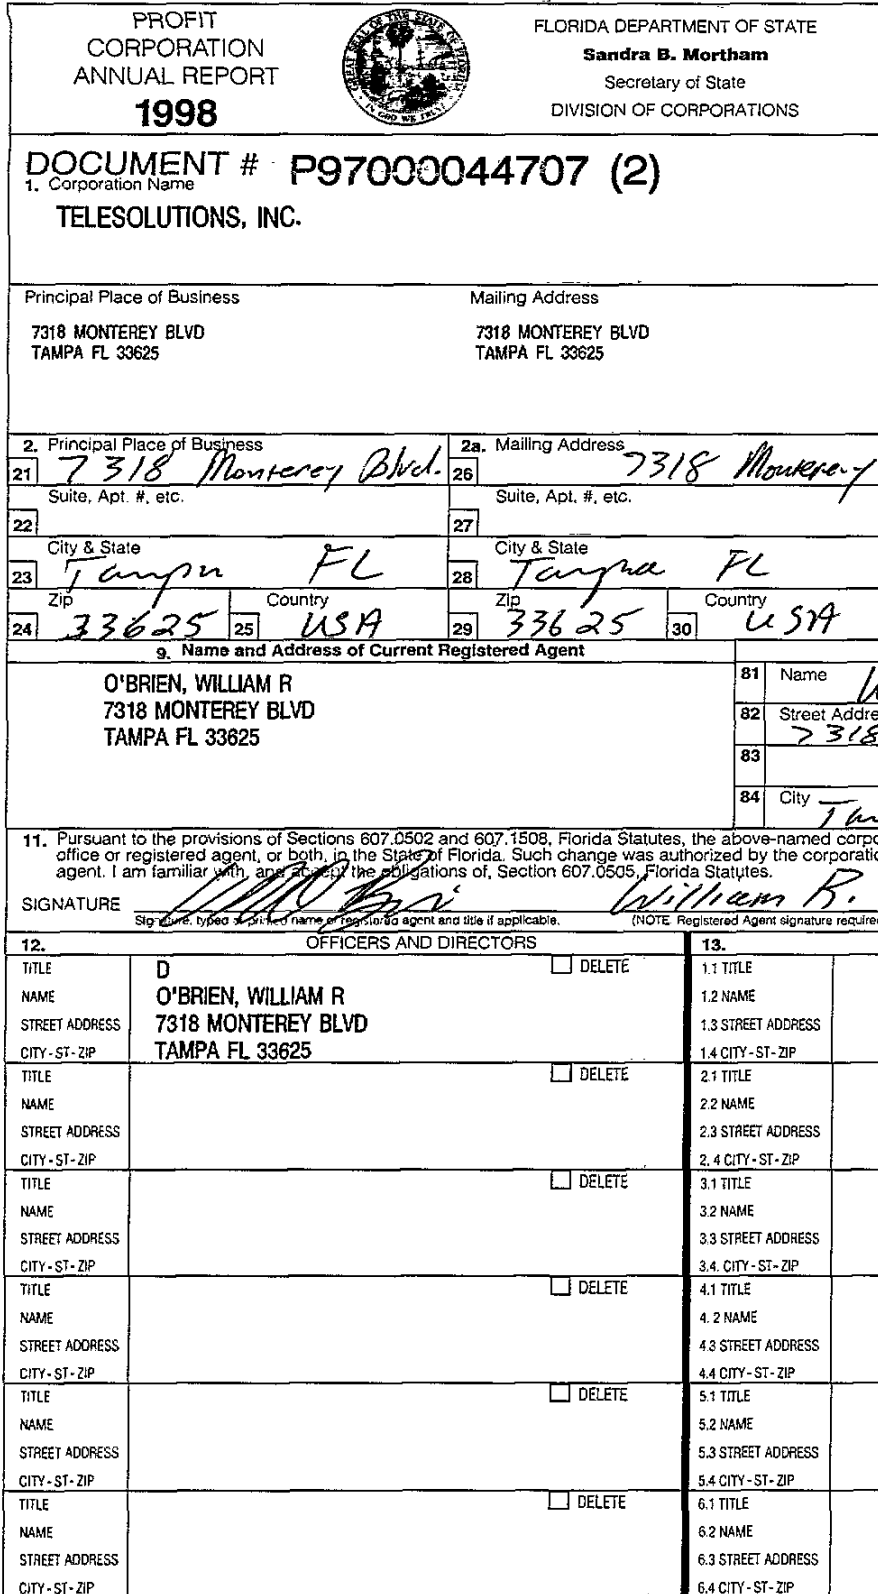 PROFIT
CORPORATION
ANNUAL REPORT
1998
GREAT SEAL OF THE STATE OF FLORIDA
IN GOD WE TRUST
FLORIDA DEPARTMENT OF STATE
Sandra B. Mortham
Secretary of State
DIVISION OF CORPORATIONS
DOCUMENT # P97000044707 (2)
1. Corporation Name
TELESOLUTIONS, INC.
Principal Place of Business
7318 MONTEREY BLVD
TAMPA FL 33625
Mailing Address
7318 MONTEREY BLVD
TAMPA FL 33625
2. Principal Place of Business
21 7318 Monterey Blvd.
2a. Mailing Address
26 7318 Monterey
Suite, Apt. #, etc.
22
Suite, Apt. #, etc.
27
City & State
23 Tampa FL
City & State
28 Tampa FL
Zip
24 33625
Country
25 USA
Zip
29 33625
Country
30 USA
9. Name and Address of Current Registered Agent
O'BRIEN, WILLIAM R
7318 MONTEREY BLVD
TAMPA FL 33625
81 Name
82 Street Addre
7318
83
84 City
11. Pursuant to the provisions of Sections 607.0502 and 607.1508, Florida Statutes, the above-named corpo
office or registered agent, or both, in the State of Florida. Such change was authorized by the corporatio
agent. I am familiar with, and accept the obligations of, Section 607.0505, Florida Statutes.
SIGNATURE William R.
Signature, typed or printed name of registered agent and title if applicable. (NOTE Registered Agent signature require
12. OFFICERS AND DIRECTORS
13.
TITLE D DELETE
NAME O'BRIEN, WILLIAM R
STREET ADDRESS 7318 MONTEREY BLVD
CITY-ST-ZIP TAMPA FL 33625
1.1 TITLE
1.2 NAME
1.3 STREET ADDRESS
1.4 CITY-ST-ZIP
TITLE DELETE
NAME
STREET ADDRESS
CITY-ST-ZIP
2.1 TITLE
2.2 NAME
2.3 STREET ADDRESS
2.4 CITY-ST-ZIP
TITLE DELETE
NAME
STREET ADDRESS
CITY-ST-ZIP
3.1 TITLE
3.2 NAME
3.3 STREET ADDRESS
3.4. CITY-ST-ZIP
TITLE DELETE
NAME
STREET ADDRESS
CITY-ST-ZIP
4.1 TITLE
4.2 NAME
4.3 STREET ADDRESS
4.4 CITY-ST-ZIP
TITLE DELETE
NAME
STREET ADDRESS
CITY-ST-ZIP
5.1 TITLE
5.2 NAME
5.3 STREET ADDRESS
5.4 CITY-ST-ZIP
TITLE DELETE
NAME
STREET ADDRESS
CITY-ST-ZIP
6.1 TITLE
6.2 NAME
6.3 STREET ADDRESS
6.4 CITY-ST-ZIP